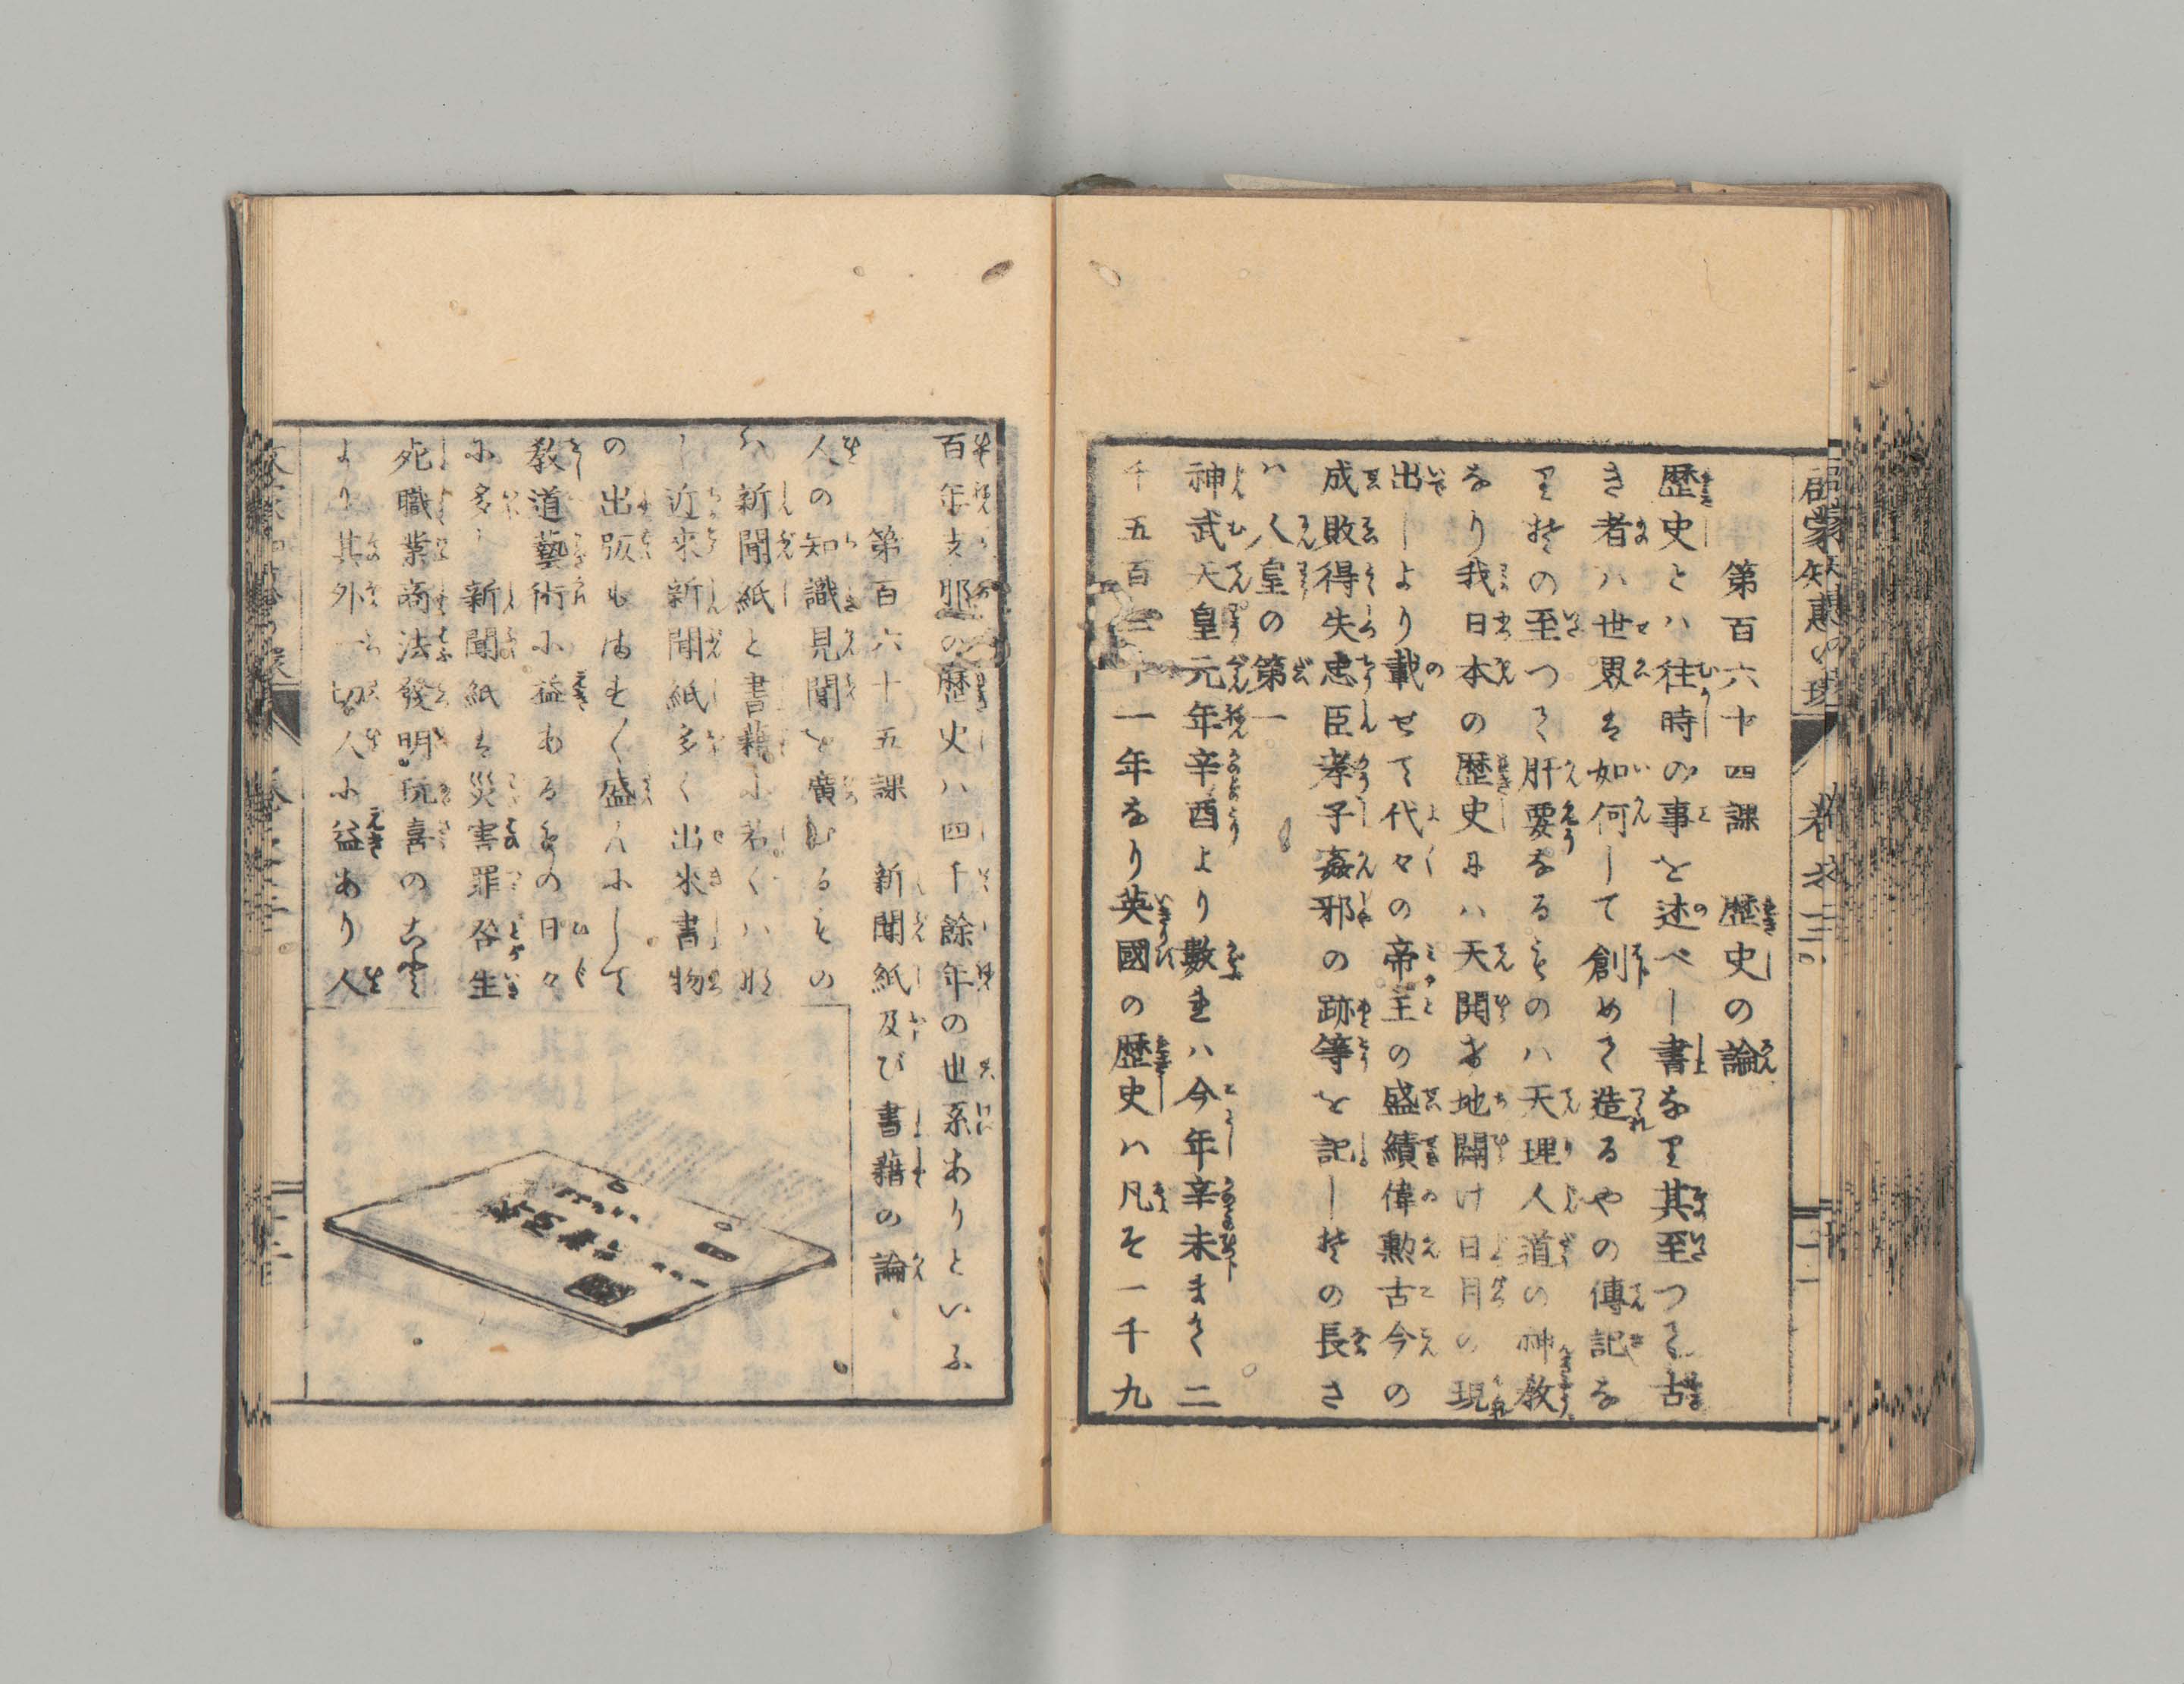 啓蒙知惠の環 卷之三 十二
第百六十四課 歴史の論
歴史とハ往時の事を述べし書なり其至つて古
き者ハ世界は如何して創めて造るやの傳記な
りその至つて肝要なるものハ天理人道の神教
なり我日本の歴史にハ天開き地闢け日月の現
出しより載せて代々の帝王の盛績偉勲古今の
成敗得失忠臣孝子姦邪の跡等を記しその長さ
ハ人皇の第一
神武天皇元年辛酉より數れハ今年辛未まて二
千五百三十一年なり英國の歴史ハ凡そ一千九
百年支那の歴史ハ四千餘年の世系ありといふ
第百六十五課 新聞紙及び書籍の論
人の知識見聞を廣むるもの
ハ新聞紙と書籍に若くハな
し近來新聞紙多く出來書物
の出版もはせく盛んにして
教道藝術に益あるもの日々
に多し新聞紙は災害罪咎生
死職業商法發明玩喜の
より其外一切人に益あり人